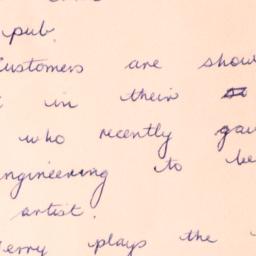 pub.
customers are show
in their
who recently gav
ngineering to be
artist.
erry plays the